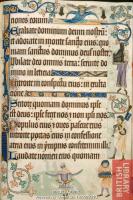 nones eorum
Exaltate dominum deum nostrum
et adorate in monte sancto eius quo
niam sanctus dominus deus noster
Iubilate deo omnis terra seruite do
mino in leticia
Introite in conspectu eius in exulta
Scitote quoniam dominus ipse
est deus ipse fecit nos et non ipsi nos
Populus eius et oues pascue
introite portas eius in confessione
atria eius in ympnis confitemini illi
Laudate nomen eius quoniam
BRITISH
LIBRARY